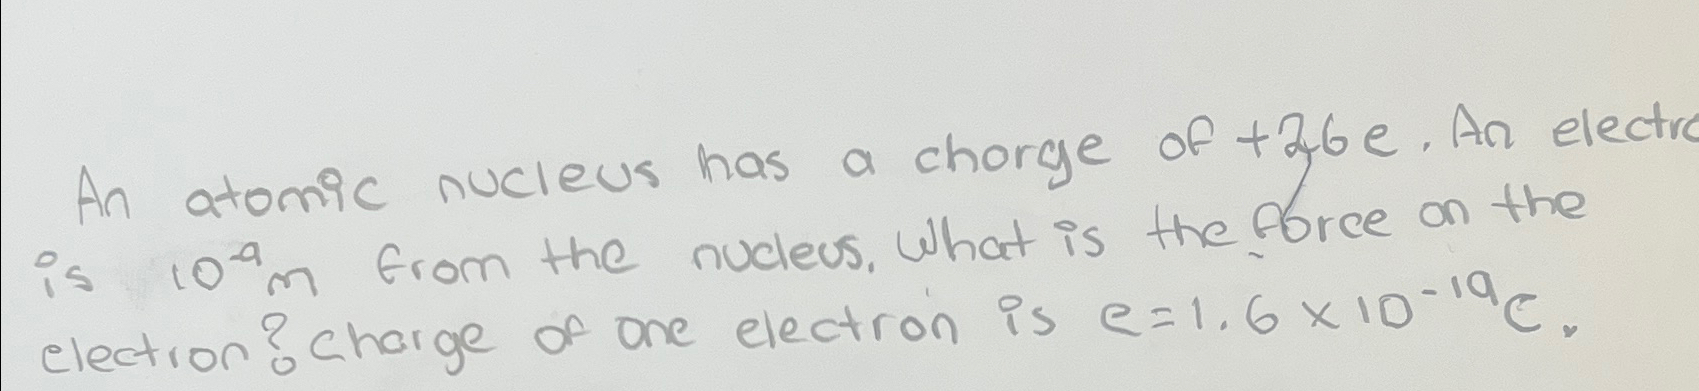 An atomic nucleus has a chorge of +26e. An electro
is 10⁻⁹m from the nucleus. What is the force on the
electron? charge of one electron is e=1.6×10⁻¹⁹C.